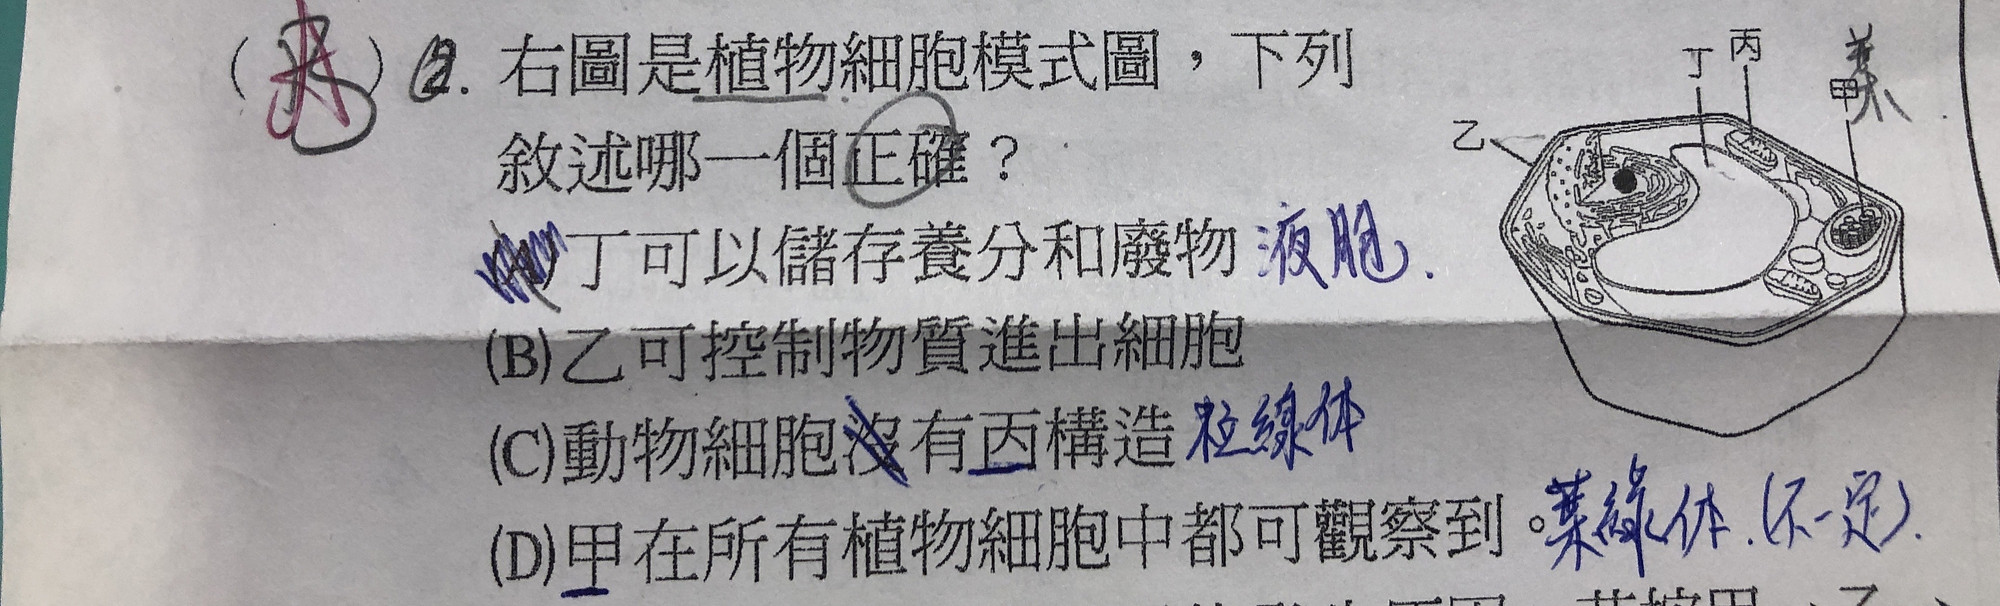 ( A ) 2. 右圖是植物細胞模式圖，下列
敘述哪一個正確？
丁可以儲存養分和廢物 液胞.
(B)乙可控制物質進出細胞
(C)動物細胞沒有丙構造 粒線体
(D)甲在所有植物細胞中都可觀察到。葉綠体.(不一定).
乙
丁
丙
甲
葉